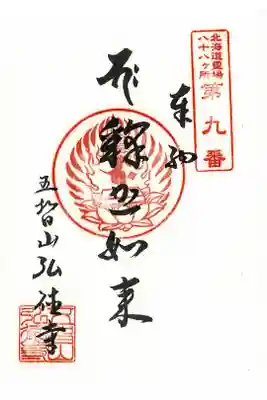 北海道霊場
八十八ヶ所
第九番
奉納
釋迦如来
五智山弘 寺